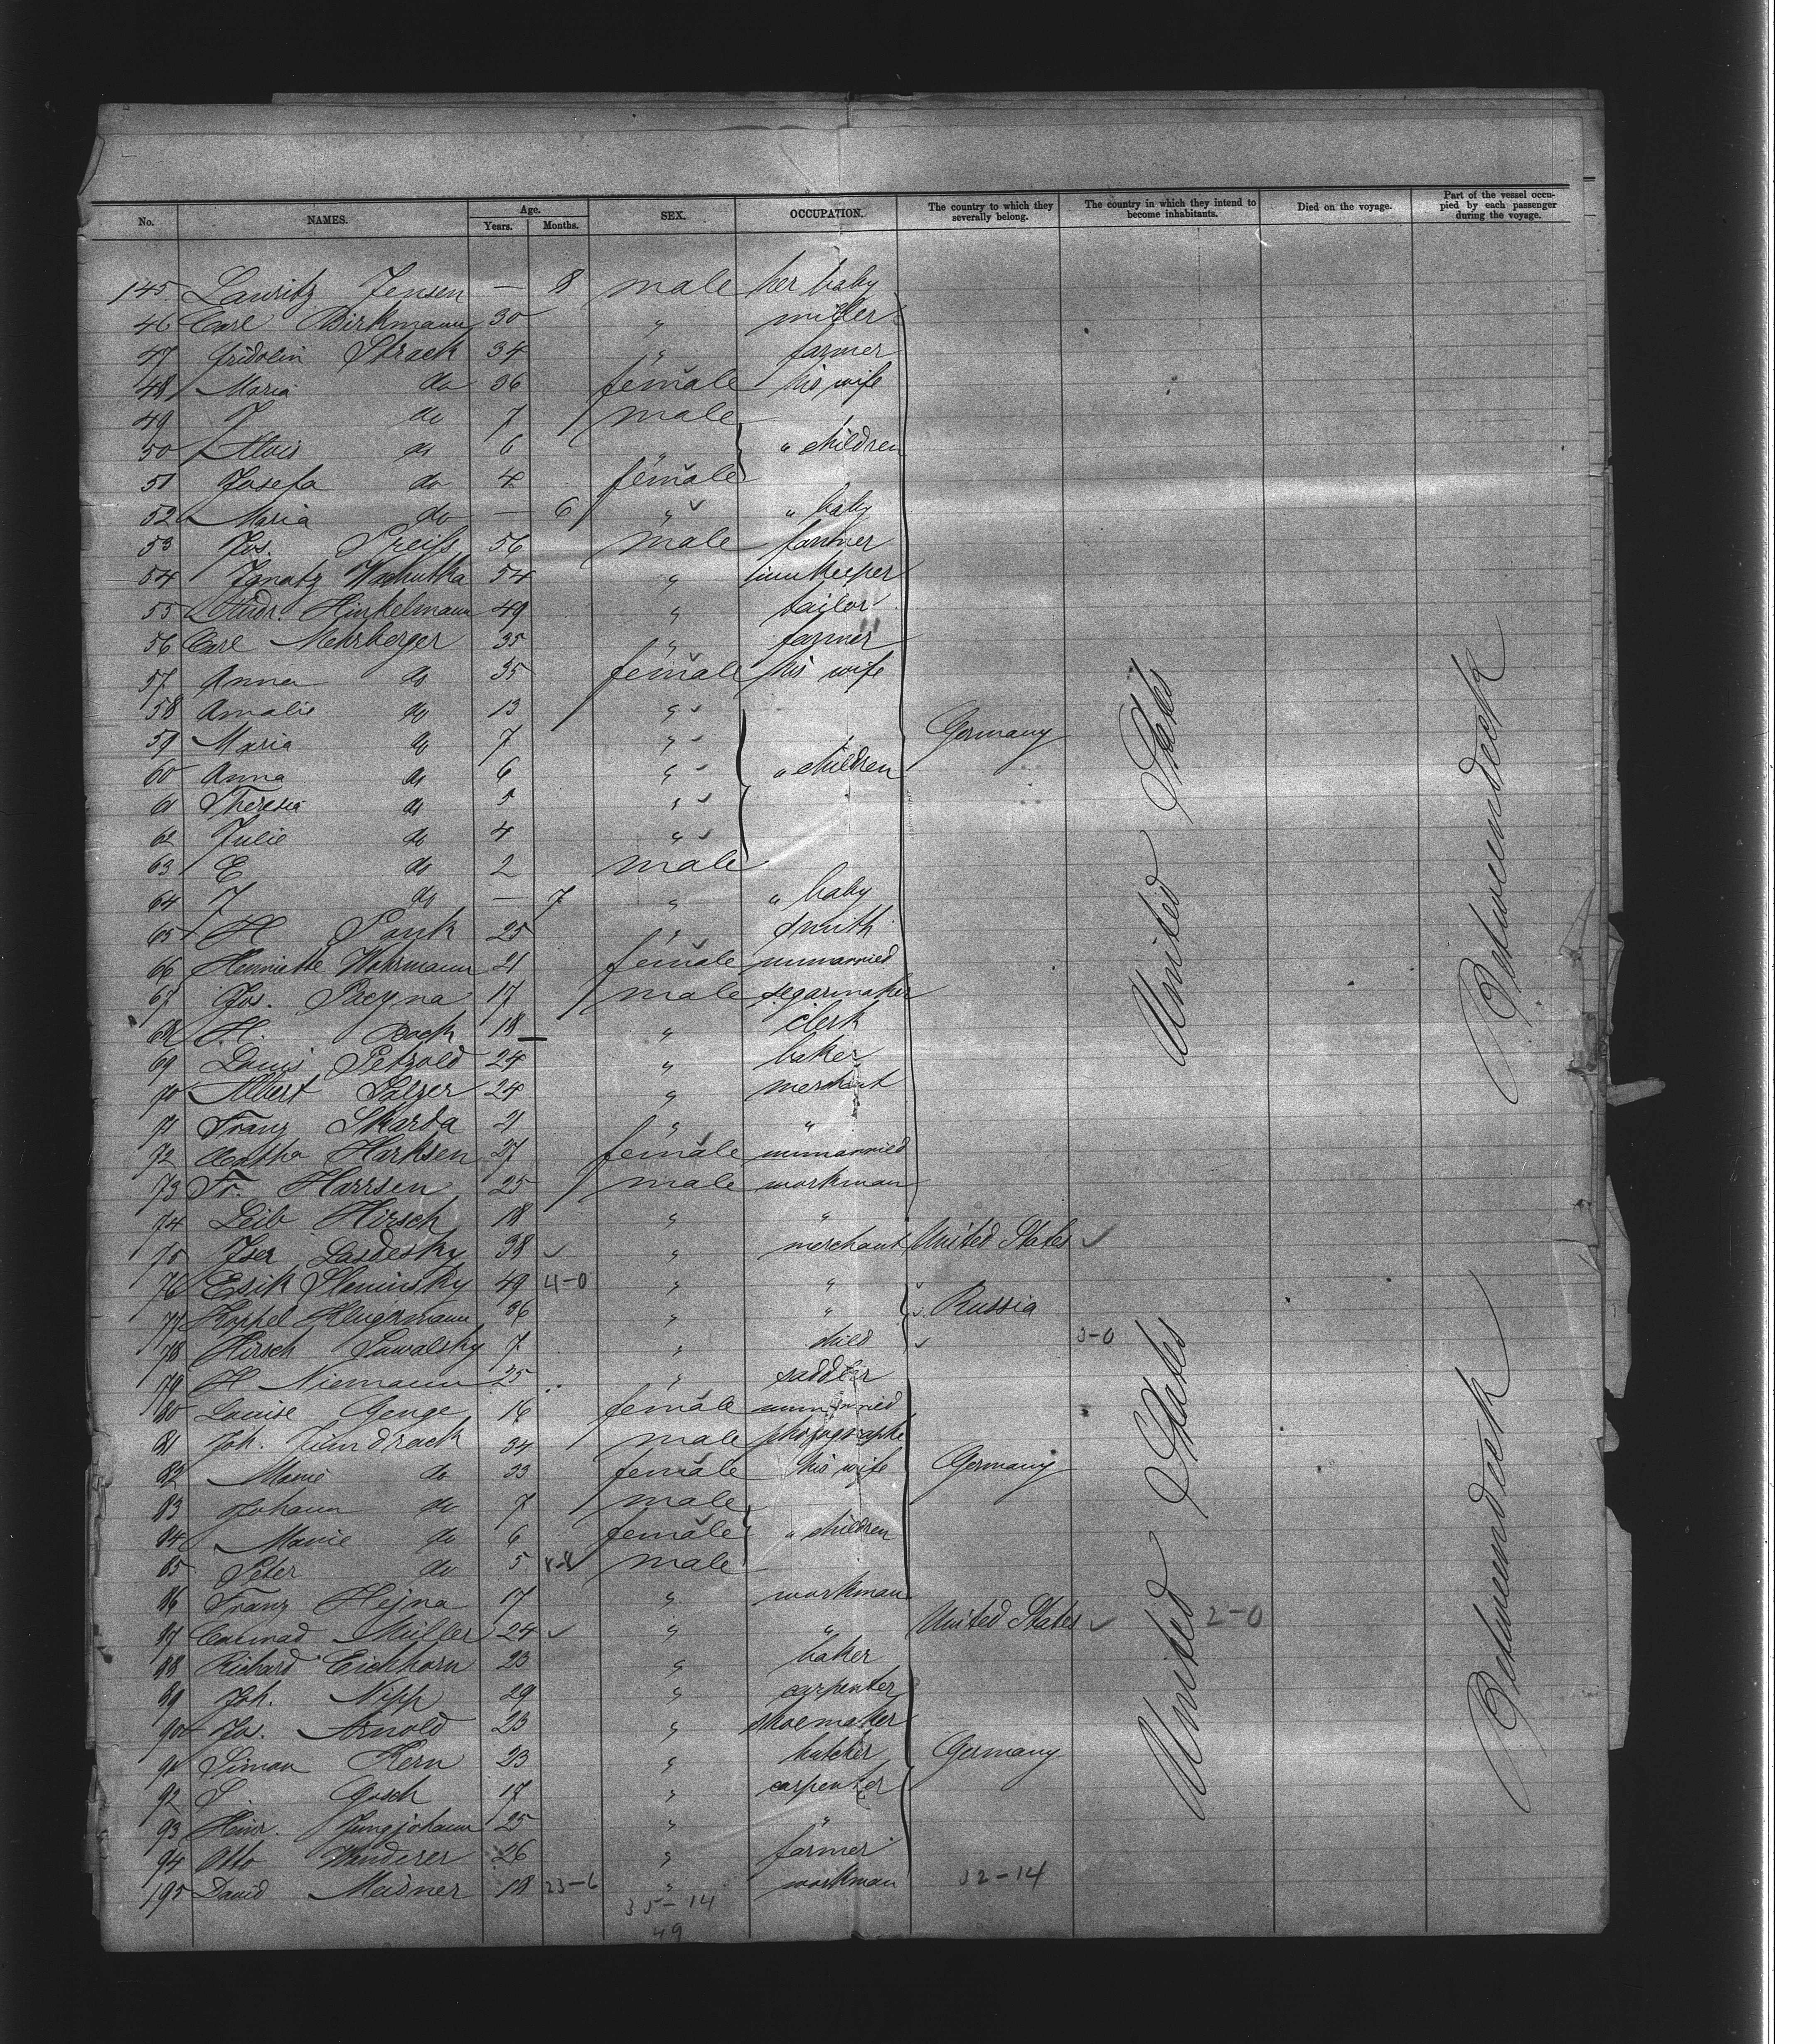 No. NAMES. Age. Years. Months. SEX. OCCUPATION. The country to which they severally belong. The country in which they intend to become inhabitants. Died on the voyage. Part of the vessel occupied by each passenger during the voyage.
145 Lauritz Jensen — 8 male her baby
46 Carl Birkmann 30 " miller
47 Fridolin Strack 34 " farmer
48 Maria do 36 female his wife
49 J do 7 male
50 Alois do 6 " " children
51 Josefa do 4 female
52 Maria do — 6 " " baby
53 Jos. Preiss 56 male farmer
54 Ignatz Wachutka 54 " innkeeper
55 Hinkelmann 49 " tailor
56 Carl Mehrberger 35 " farmer
57 Anna do 35 female his wife
58 Amalie do 13 "
59 Maria do 7 " Germany
60 Anna do 6 " " children
61 Theresia do 5 "
62 Julie do 4 "
63 E do 2 male
64 J do — 7 " " baby
65 H Pank 25 " smith
66 Henriette Wohrmann 21 female unmarried
67 Jos. Pacyna 17 male segarmaker
68 H. Bock 18 " clerk
69 Louis Petzold 24 " baker
70 Albert Salzer 24 " merchant
71 Franz Skarda 21 " "
72 Agatha Harksen 27 female unmarried
73 Fr. Harrsen 25 male workman
74 Leib Hirsch 18 " "
75 Iser Lasdesky 38 " merchant United States
76 Esik Slaminsky 49 4-0 " "
77 Koppel Klugermann 36 " " Russia
78 Hirsch Suwalsky 7 " child 3-0
79 H Niemann 25 " saddler
80 Louise Genge 16 female unmarried
81 Joh. 34 male photographe
82 Marie do 33 female his wife Germany
83 Johann do 7 male
84 Marie do 6 female " children
85 Peter do 5 male
86 Franz Hejna 17 " workman
87 Conrad Müller 24 " " United States 2-0
88 Richard Eichhorn 23 " baker
89 Joh. Nipp 29 " carpenter
90 Jos. Arnold 23 " shoemaker
91 Simon Kern 23 " butcher Germany
92 S. Gosch 17 " carpenter
93 Heinr. Jungjohann 25 " "
94 Otto Wunderer 26 " farmer
195 David Meisner 18 23-6 " workman 32-14
35-14
49
United States
Betweendeck
United States
Betweendeck